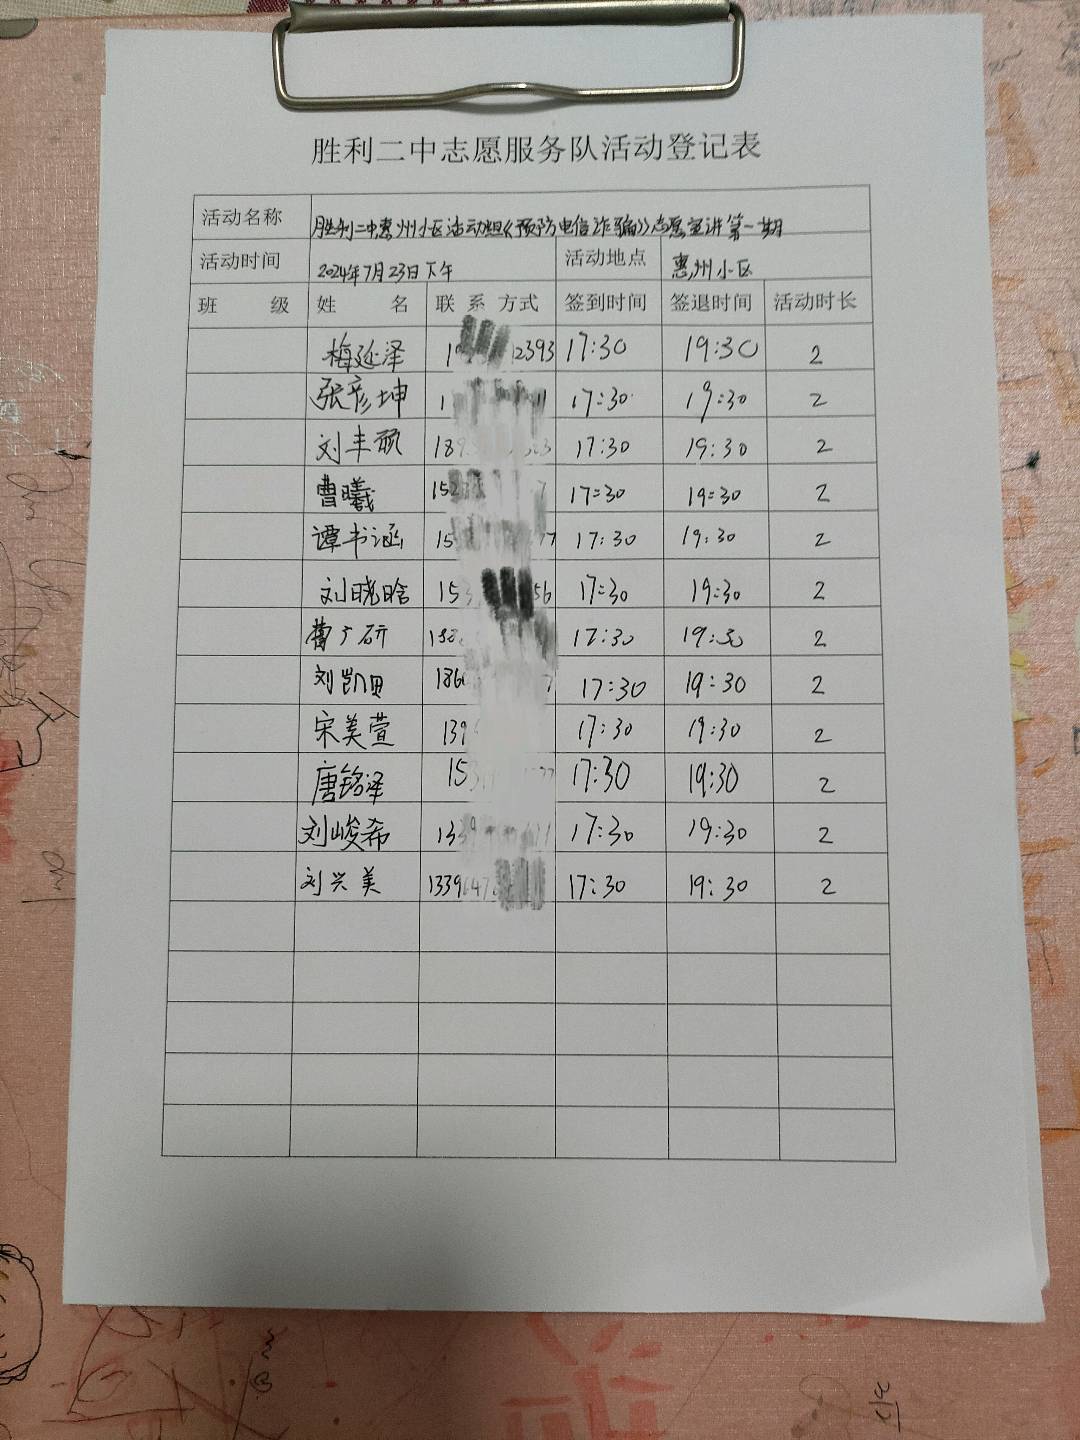 胜利二中志愿服务队活动登记表
活动名称 胜利二中惠州小区活动组《预防电信诈骗》志愿宣讲第一期
活动时间 2024年7月23日下午 活动地点 惠州小区
班 级 姓 名 联系方式 签到时间 签退时间 活动时长
梅延泽 12393 17:30 19:30 2
张彦坤 17:30 19:30 2
刘丰硕 189 17:30 19:30 2
曹曦 152 17:30 19:30 2
谭书涵 15 77 17:30 19:30 2
刘晓晗 153 56 17:30 19:30 2
广研 17:30 19:30 2
刘凯 186 17:30 19:30 2
宋美萱 139 17:30 19:30 2
唐铭泽 153 17:30 19:30 2
刘峻希 1339 17:30 19:30 2
刘兴美 1339647 17:30 19:30 2